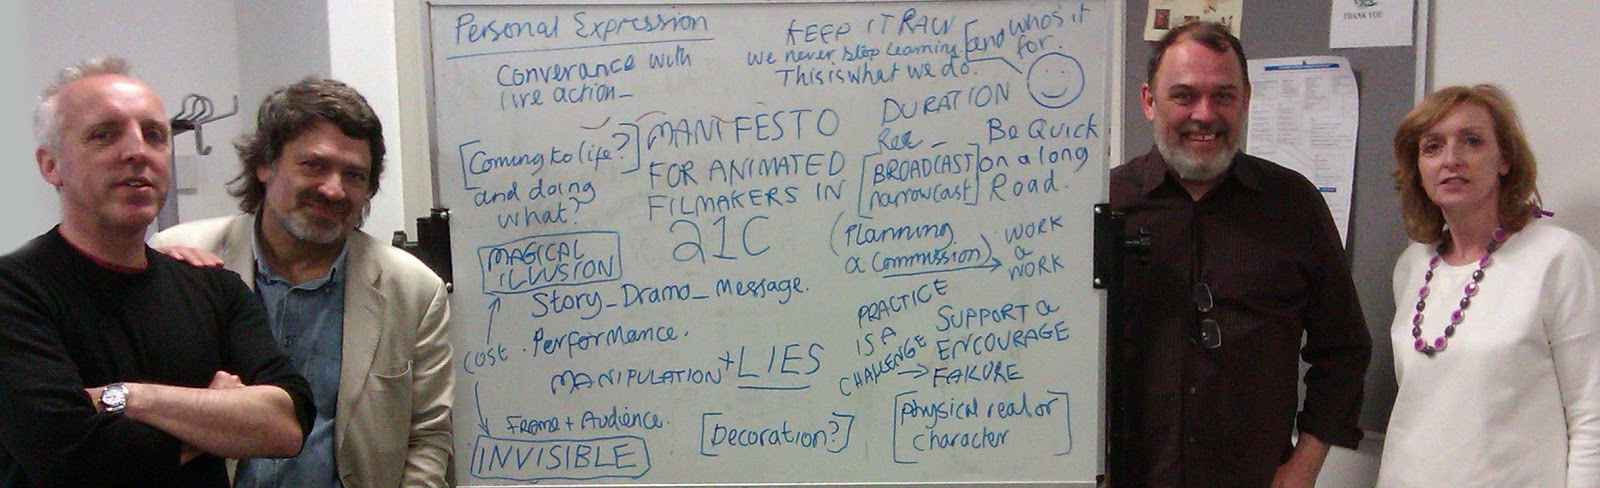 Personal Expression
Converance with
live action_
KEEP IT RAW
we never stop learning.
This is what we do.
[end who's it
for.
DURATION
Ree_
[Coming to life?]
and doing
what?
MANIFESTO
FOR ANIMATED
FILMAKERS IN
21C
[BROADCAST
narrowcast]
Be Quick
on a long
Road.
(Planning
a Commission)
WORK
a
WORK
MAGICAL
ILLUSION
Story_Drama_Message.
Cost . Performance.
MANIPULATION + LIES
Frame + Audience.
INVISIBLE
[Decoration?]
PRACTICE
IS A
CHALLENGE
SUPPORT a
ENCOURAGE
FAILURE
[physical real or
character]
THANK YOU